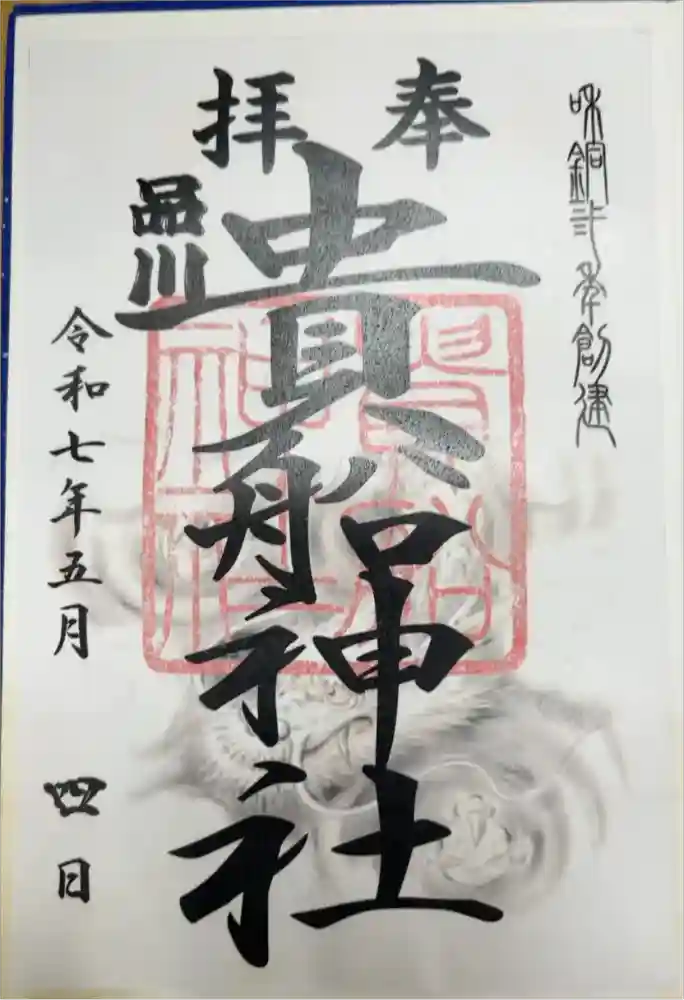 和銅弐年創建
奉拝
品川
貴船神社
令和七年五月
四日